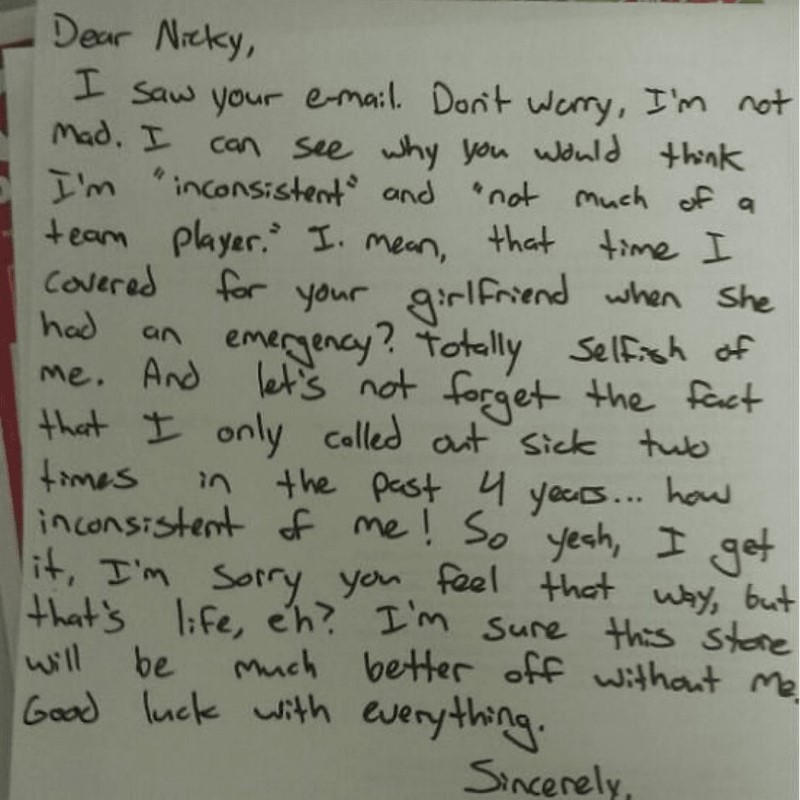 Dear Nicky,
I saw your e-mail. Don't worry, I'm not
mad. I can see why you would think
I'm "inconsistent" and "not much of a
team player." I. mean, that time I
covered for your girlfriend when she
had an emergency? Totally selfish of
me. And let's not forget the fact
that I only called out sick two
times in the past 4 years... how
inconsistent of me! So yeah, I get
it, I'm sorry you feel that way, but
that's life, eh? I'm sure this store
will be much better off without me.
Good luck with everything.
Sincerely,